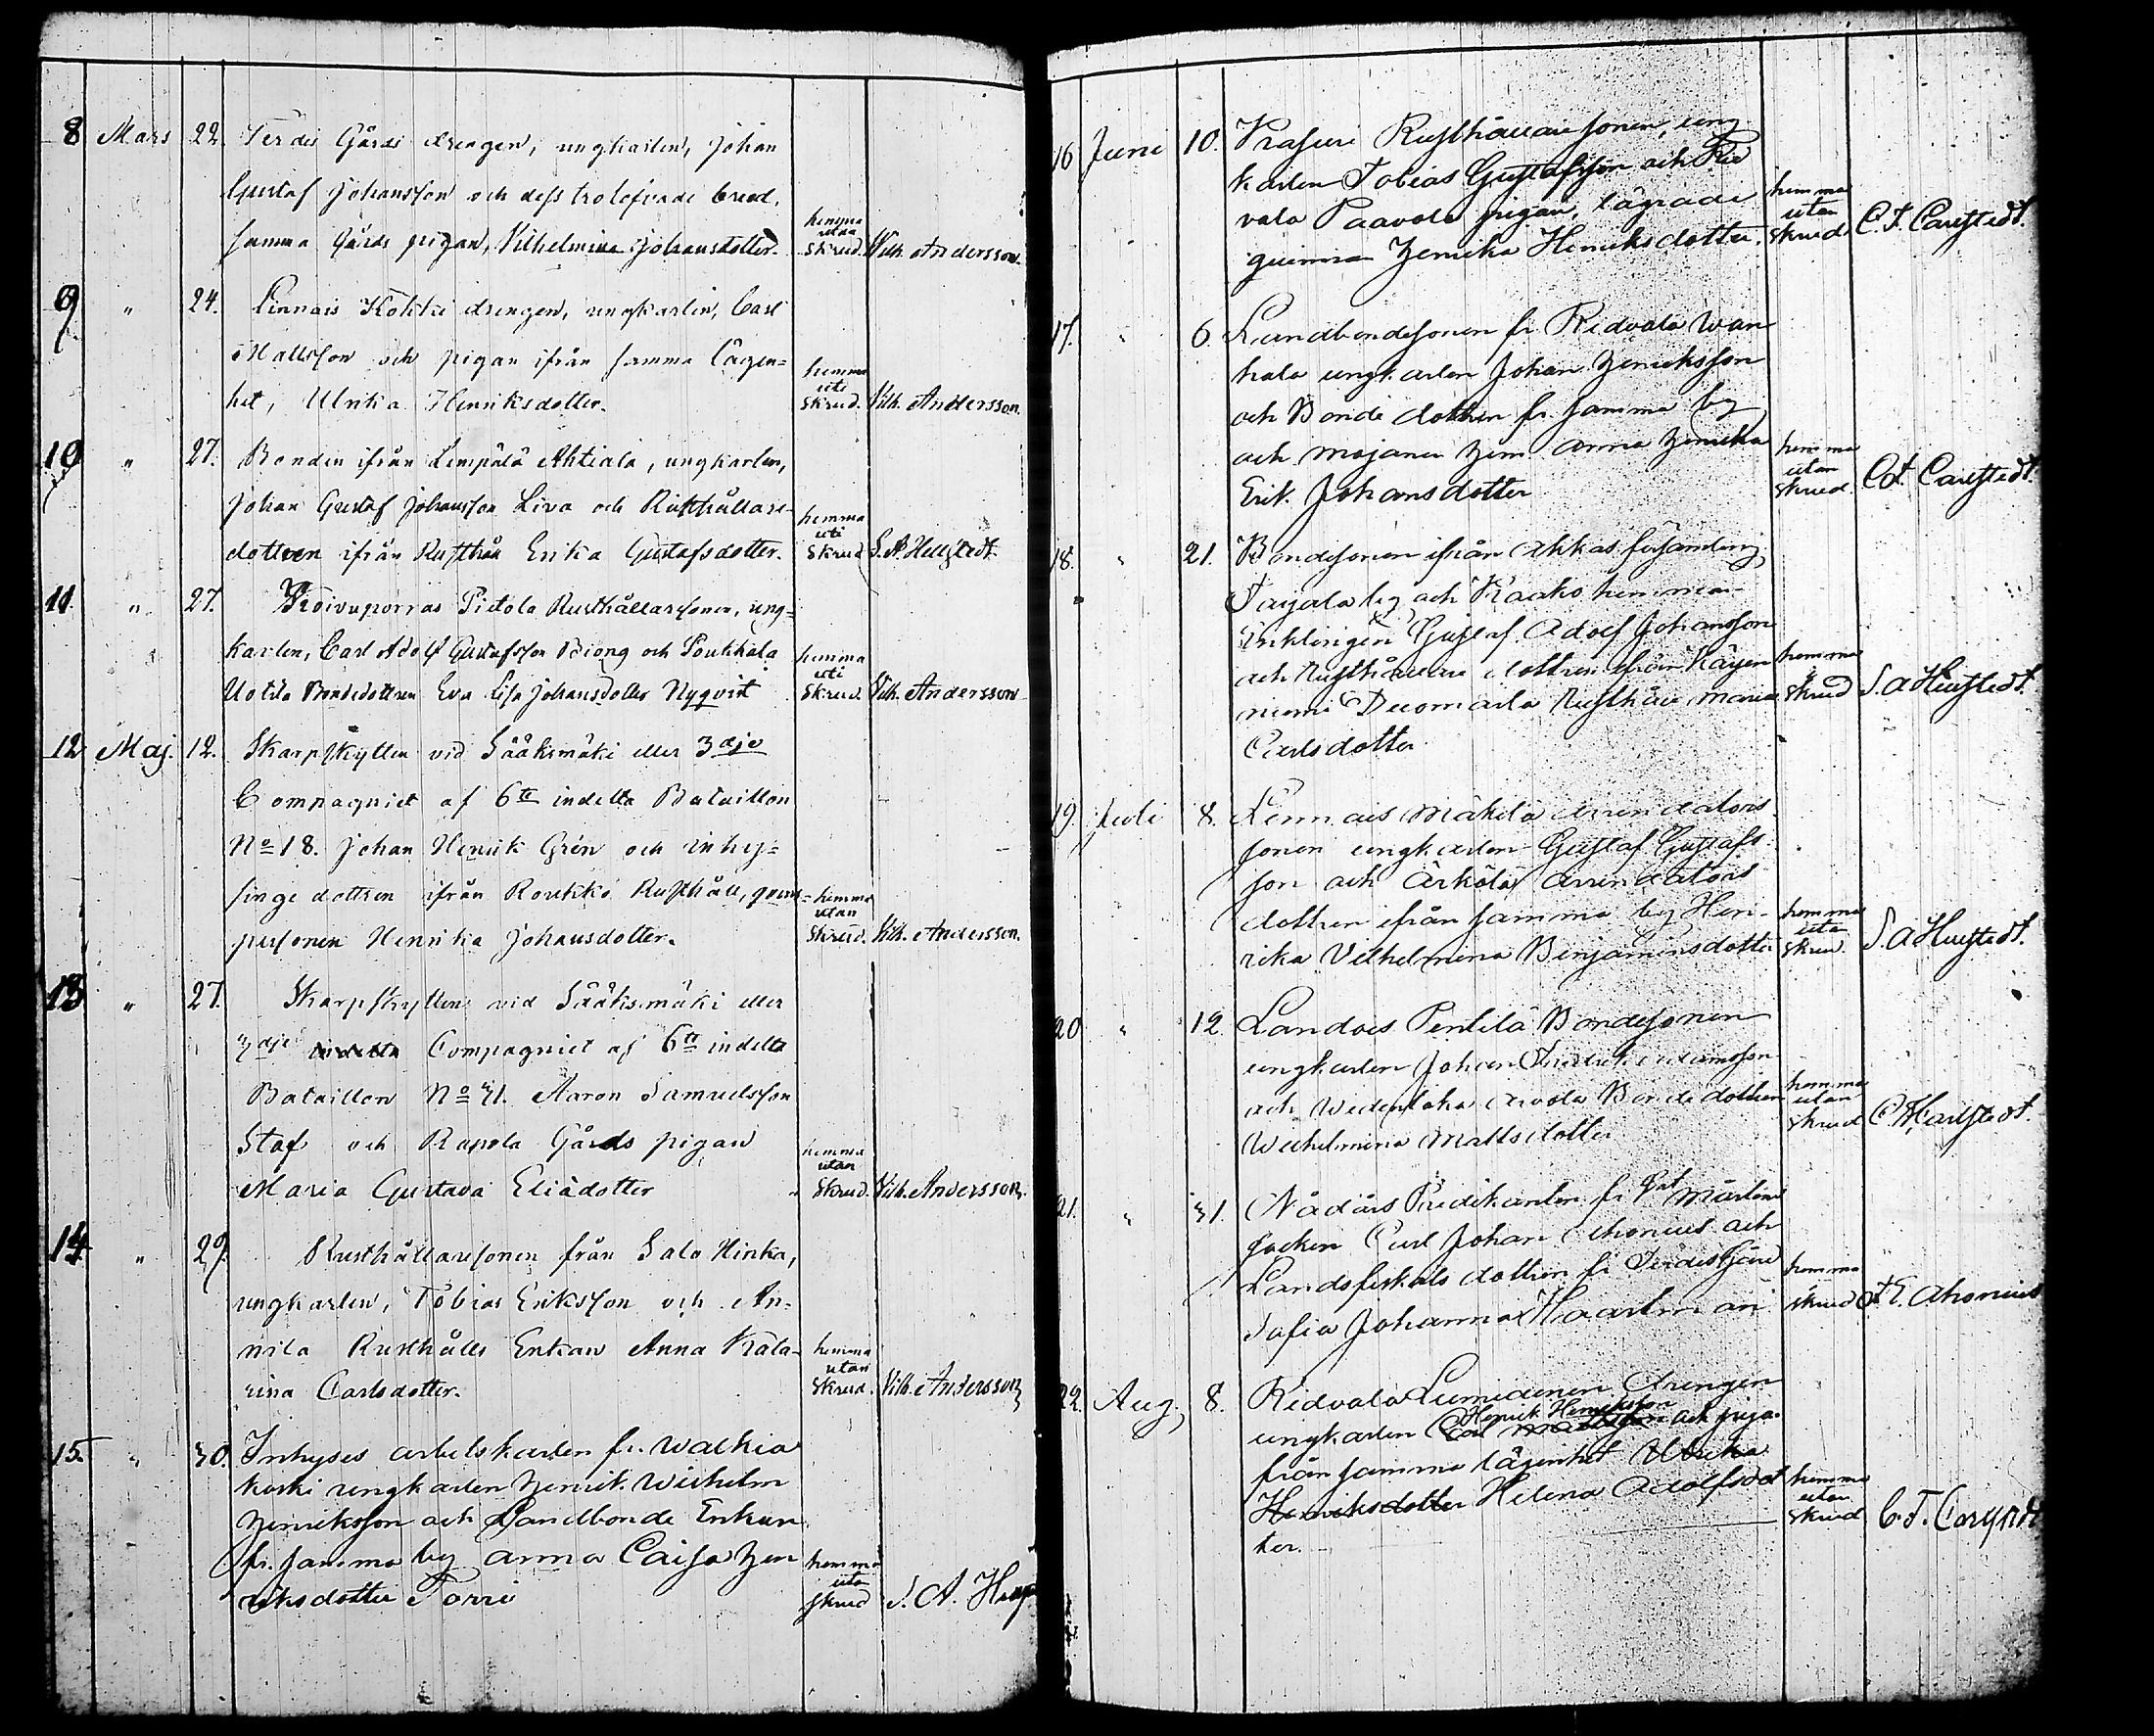 8 Mars 22. Jerdis Gårds drengen, ungkarlen, Johan
Gustaf Johansson och dess trolofvade brud,
samma Gårds pigan, Vilhelmina Johansdotter. hemma utan Skrud. Vilh. Andersson.
9 " 24. Linnais Kokki drengen, ungkarlen, Carl
Mattsson och pigan ifrån samma lägen=
het, Ulrika Henriksdotter. hemma uti Skrud. Vilh. Andersson.
10 " 27. Bonden ifrån Lempälä Ahtiala, ungkarlen,
Johan Gustaf Johansson Liva och Rusthållare-
dottren ifrån Rusthåll Erika Gustafsdotter. hemma uti Skrud S. A. Hellstedt.
11. " 27. Pietola Rusthållaresonen, ung=
karlen, Carl Adolf Gustafsson och
Uotila Bondedottren Eva Lisa Johansdotter Nyqvist hemma uti Skrud. Vilh. Andersson
12 Maj. 12. Skarpskytten vid Sääksmäki eller 3dje
Compagniet af 6te indelta Bataillon
No 18. Johan Henrik Grén och inhy=
singe dottren ifrån Roukko Rusthåll, qvins=
personen Henrika Johansdotter. hemma utan Skrud. Vilh. Andersson.
13 " 27. Skarpskytten vid Sääksmäki eller
3dje Compagniet af 6te indelta
Bataillon No 31. Aaron Samuelsson
Staf och Rapola Gårds pigan
Maria Gustava Eliädotter hemma utan Skrud. Vilh. Andersson.
14 " 29. Rusthållaresonen från Salo Hinka,
ungkarlen, Tobias Eriksson och An-
nila Rusthålls Enkan Anna Kata-
rina Carlsdotter. hemma utan Skrud. Vilh. Andersson
15. " 30. Inhyses arbetskarlen fr. Walkia
koski ungkarlen Henrik Wilhelm
Henriksson och Landbonde Enkan
fr. samma by Anna Caisa Hen
riksdotter Torri hemma utan skrud S. A.
16 Juni 10. Rusthållaresonen, ung
karlen Tobias Gustafsson och Rid
vala Paavola pigan, lägrade
qvinnan Henrika Henriksdotter. hemma utan skrud C. F. Carlstedt.
17. " 6. Landbondesonen fr. Ridvala Wan
hala ungkarlen Johan Henriksson
och Bonde dottren fr. samma by
och Anna Henrika
Erik Johansdotter hemma utan skrud. C. F. Carlstedt.
18. " 21. Bondesonen ifrån Akkas församling
by och Kaako hemman
Gustaf Adolf Johansson
och Rusthållare dottren ifrån Käyen
niemi Duomarla Rusthåll Maria hemma i skrud S. A. Hellstedt.
Carlsdotter.
19. Juli 8. Lennais Mäkelä Arrendators
sonen ungkarlen Gustaf Gustafs
son och Ärkölä Arrendators
dottren ifrån samma by Hen-
rika Vilhelmina Benjaminsdotter hemma utan skrud. S. A. Hellstedt.
20 " 12. Landois Pentilä Bondesonen
ungkarlen Johan Fredrik Adamsson
och Bonde dottren
Wilhelmina Mattsdotter hemma utan skrud C. F. Carlstedt.
21. " 31. Nådårs Predikanten fr. St Mårtens
socken Carl Johan Ahonius och
Landsfiskals dottren fr.
Sofia Johanna Haartman hemma i skrud F. E. Ahonius
22. Aug. 8. Ridvala Lumiainen drengen
Henrik Henriksson
ungkarlen Carl Mattsson och piga
från samma lägenhet Ulrika
Henriksdotter Helena Adolfsdot hemma utan skrud C. F. Carlstedt
ter.